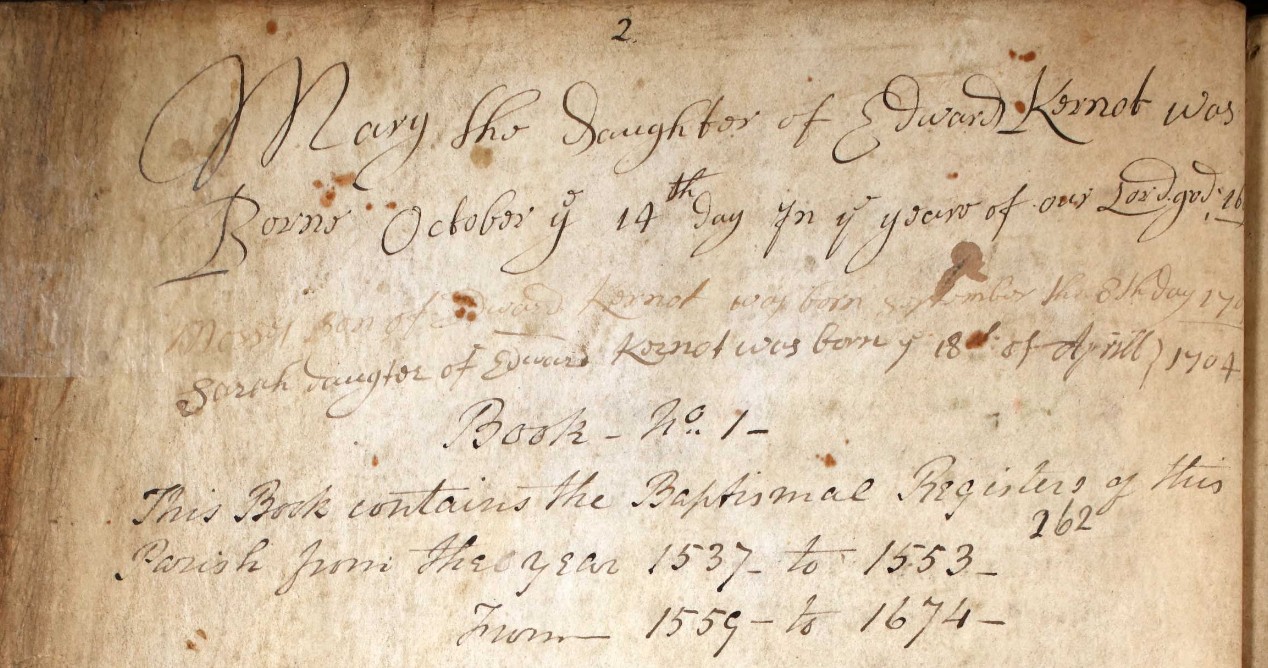 2
Mary the Daughter of Edward Kernot was
Borne October ye 14th day In ye yeare of our Lord god: 16
Moses son of Edward Kernot was born September the 8th day 170
Sarah daugter of Edward Kernot was born ye 18th of Aprill 1704
Book - No. 1 -
This Book contains the Baptismal Registers of this
262
Parish from the year 1537 - to 1553 -
From 1559 - to 1674 -